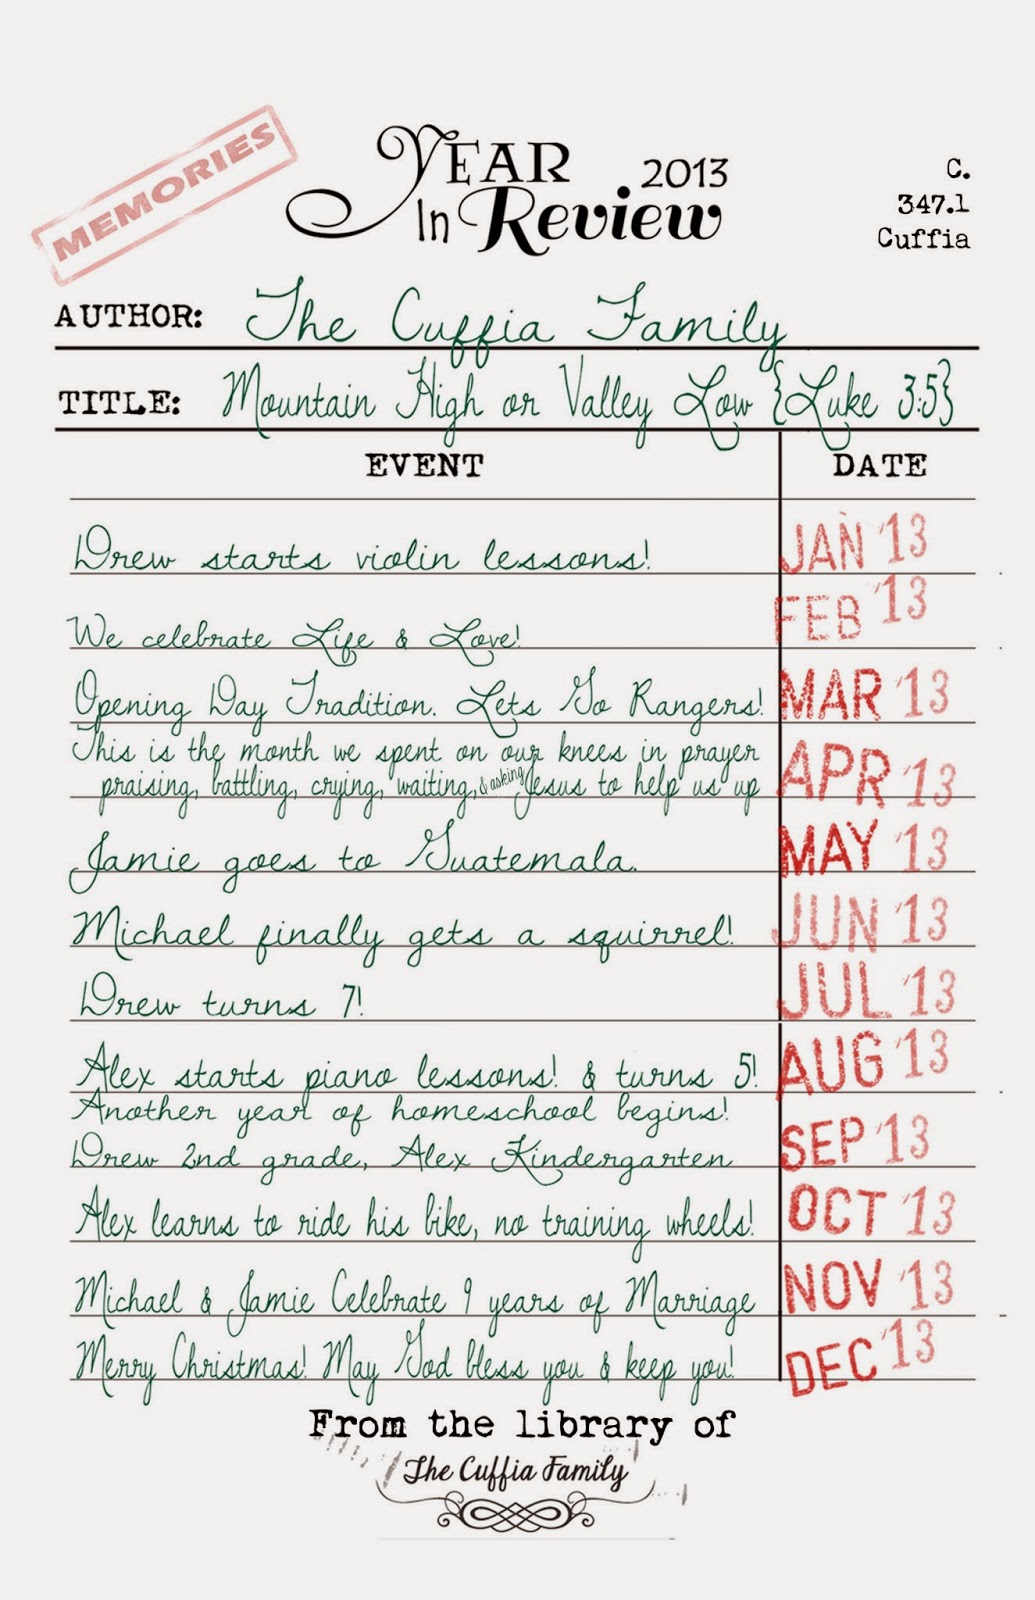 MEMORIES
YEAR 2013
In Review
C.
347.1
Cuffia
AUTHOR: The Cuffia Family
TITLE: Mountain High or Valley Low {Luke 3:5}
EVENT DATE
Drew starts violin lessons! JAN '13
We celebrate Life & Love! FEB '13
Opening Day Tradition. Lets Go Rangers! MAR '13
This is the month we spent on our knees in prayer
praising, battling, crying, waiting, & asking Jesus to help us up APR '13
Jamie goes to Guatemala. MAY '13
Michael finally gets a squirrel! JUN '13
Drew turns 7! JUL '13
Alex starts piano lessons! & turns 5! AUG '13
Another year of homeschool begins!
Drew 2nd grade, Alex Kindergarten SEP '13
Alex learns to ride his bike, no training wheels! OCT '13
Michael & Jamie Celebrate 9 years of Marriage NOV '13
Merry Christmas! May God bless you & keep you! DEC '13
From the library of
The Cuffia Family